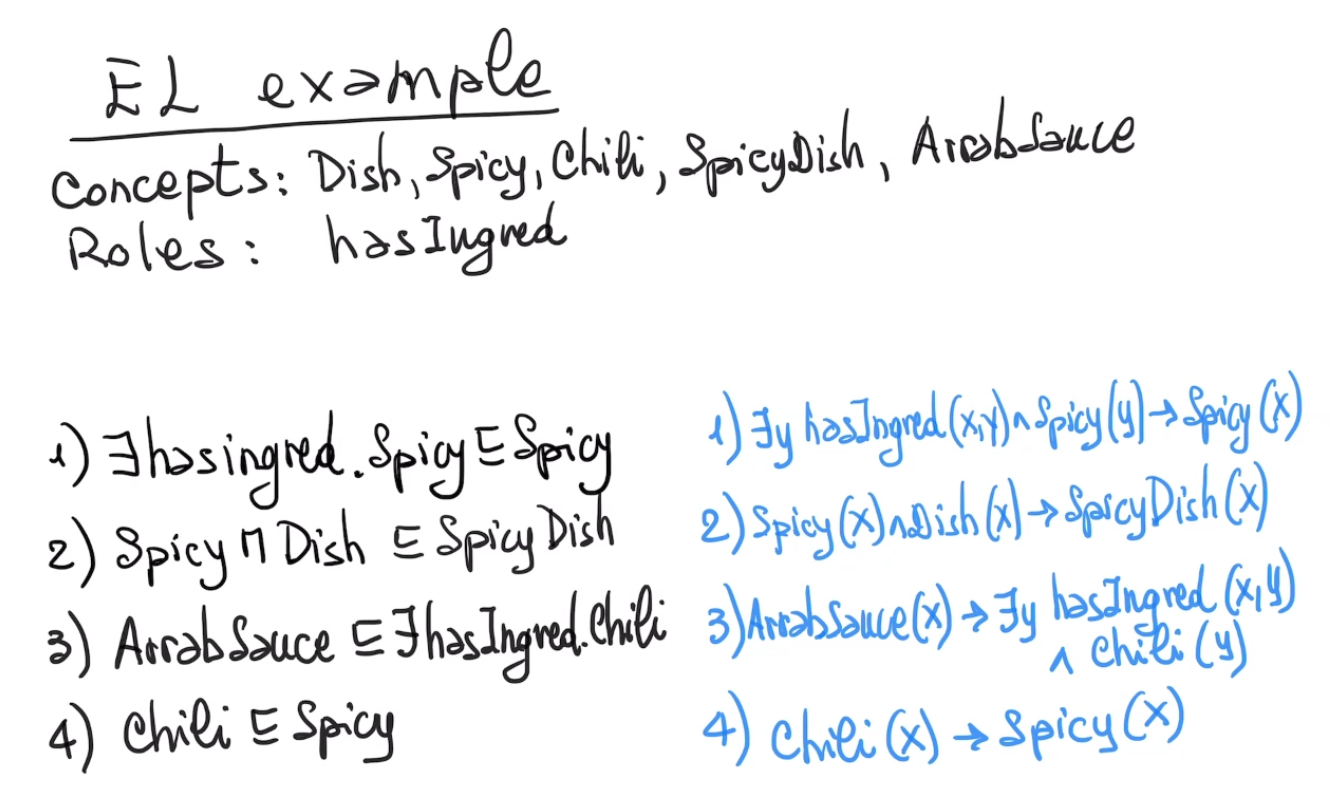 EL example
Concepts: Dish, Spicy, Chili, SpicyDish, ArrabSauce
Roles: hasIngred
1) ∃hasingred.Spicy ⊑ Spicy
2) Spicy ⊓ Dish ⊑ SpicyDish
3) ArrabSauce ⊑ ∃hasIngred.Chili
4) Chili ⊑ Spicy
1) ∃y hasIngred(x,y) ∧ Spicy(y) → Spicy(x)
2) Spicy(x) ∧ Dish(x) → SpicyDish(x)
3) ArrabSauce(x) → ∃y hasIngred(x,y)
∧ Chili(y)
4) Chili(x) → Spicy(x)